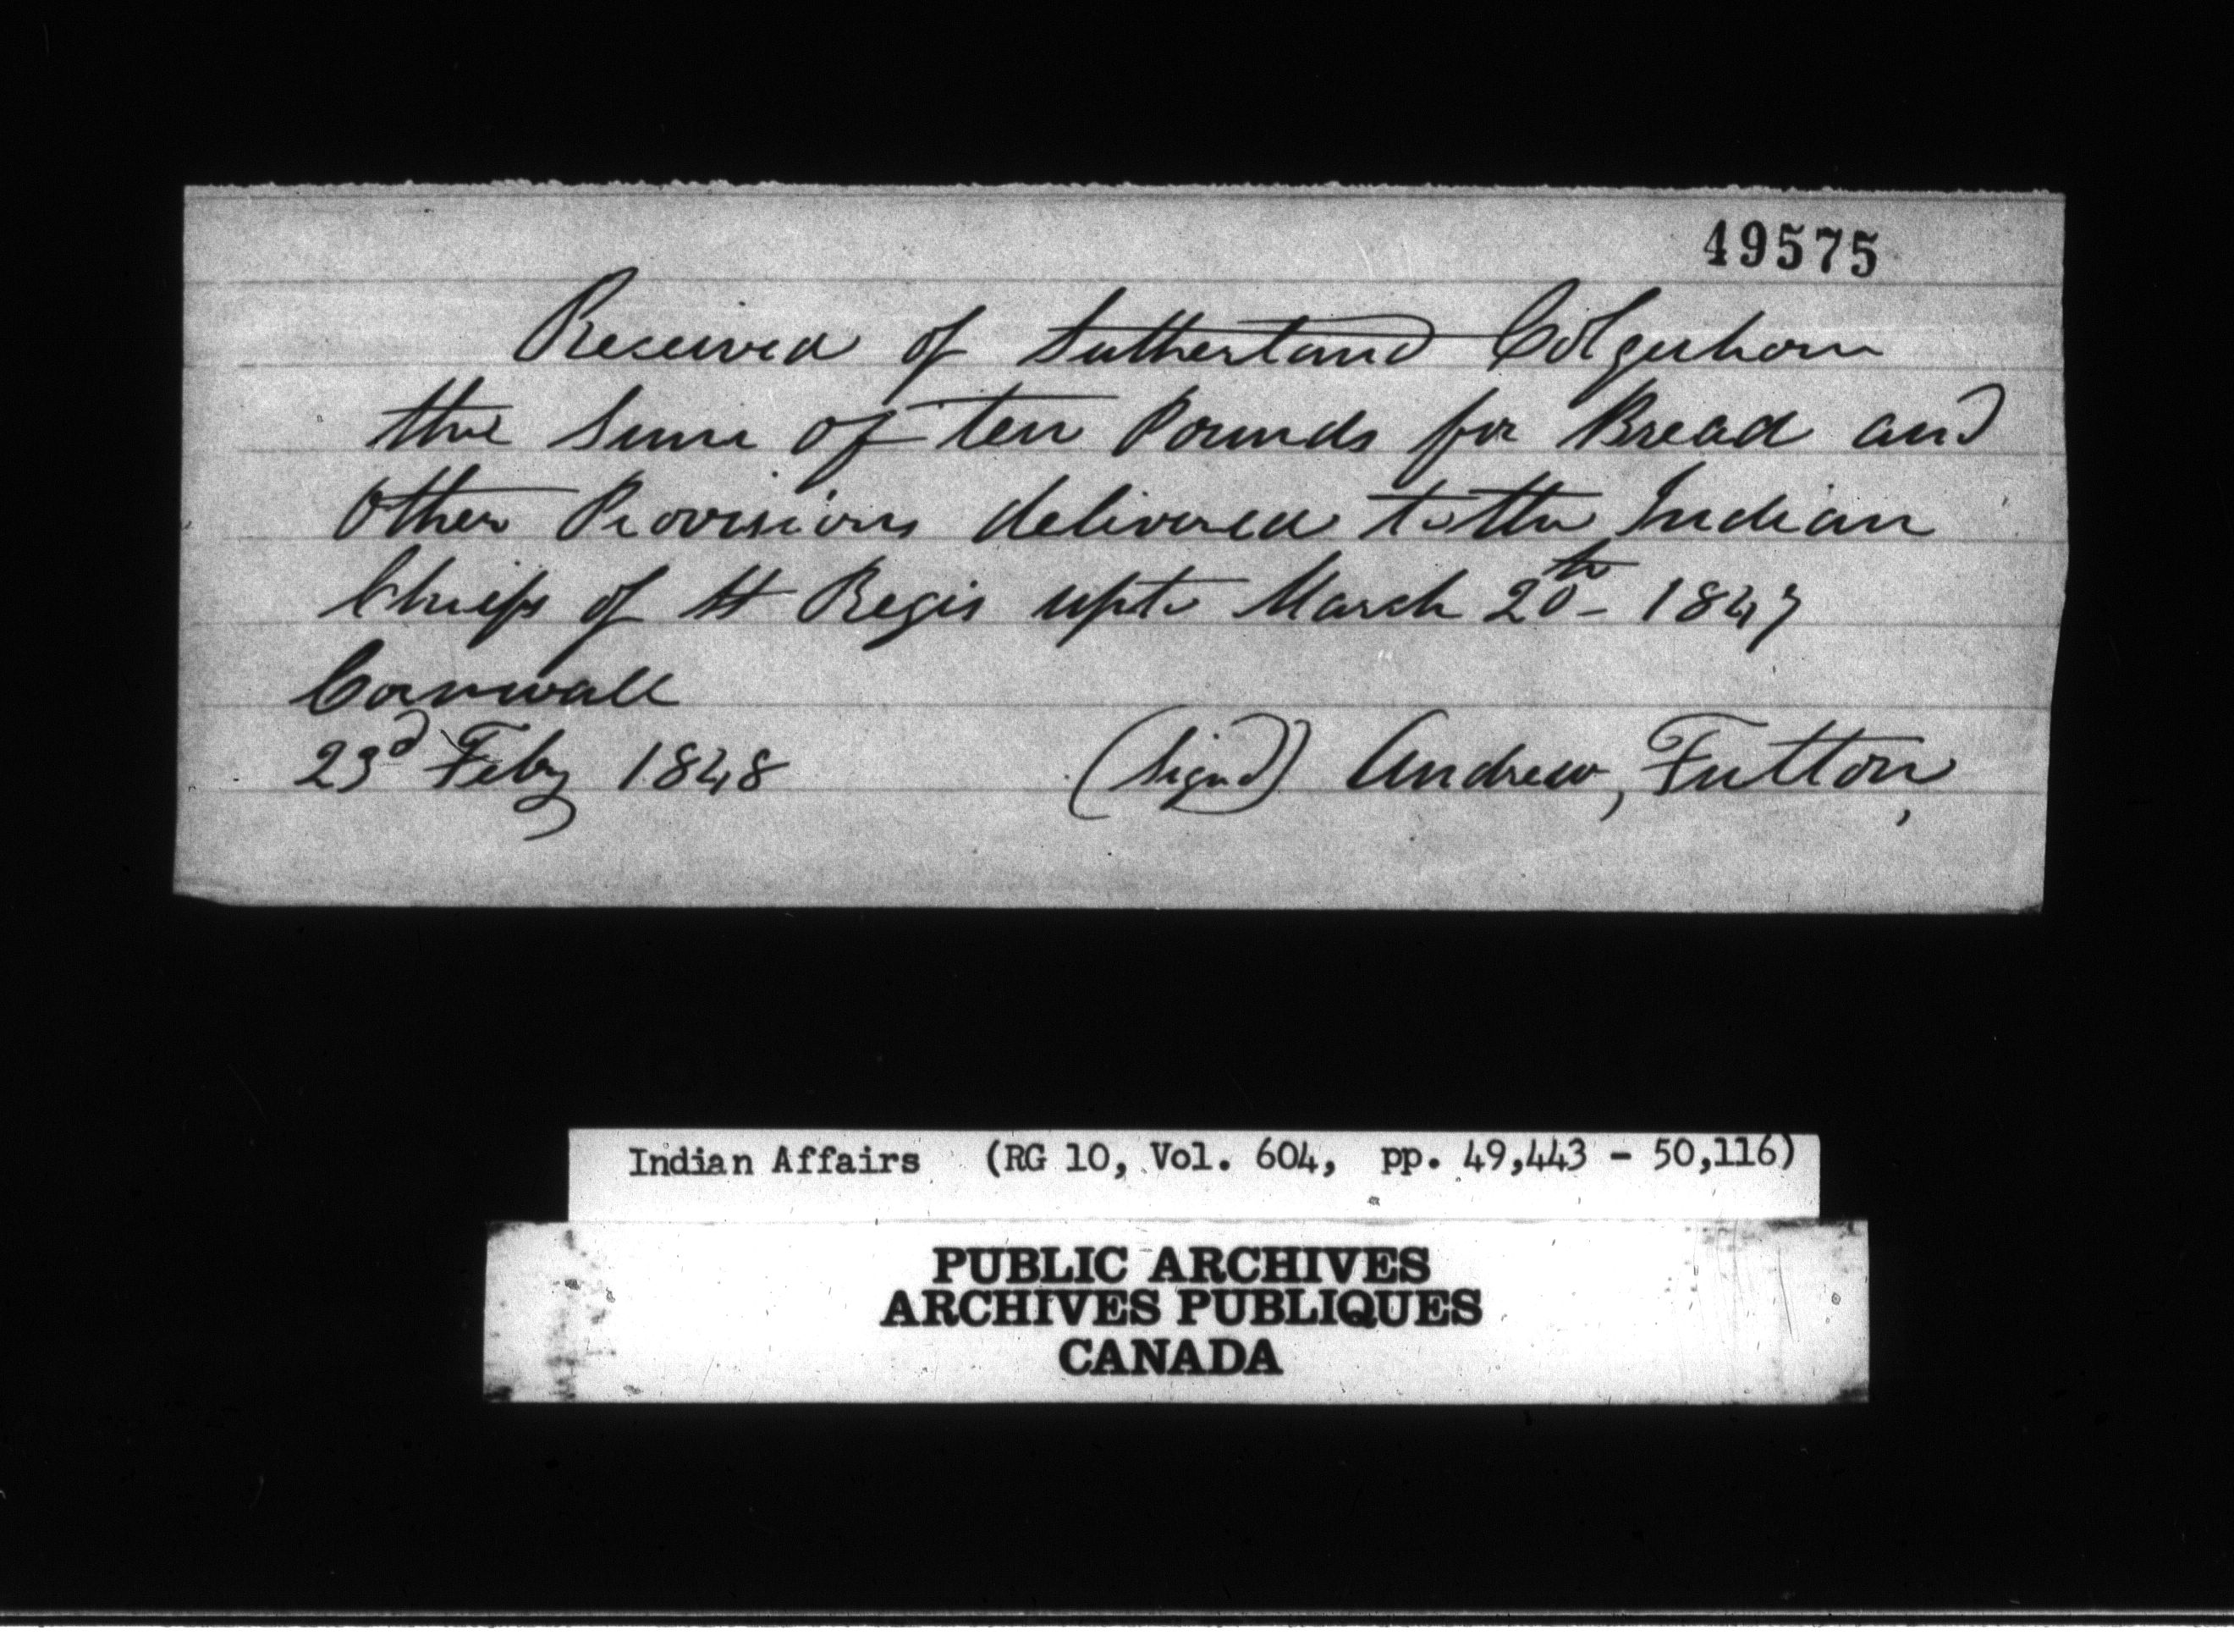 49575
Received of Sutherland Colquhoun
the Sum of ten Pounds for Bread and
Other Provisions delivered to the Indian
Chiefs of St Regis upto March 20th 1847
Cornwall
23d Feby 1848 (Signd) Andrew, Futton,
Indian Affairs (RG 10, Vol. 604, pp. 49,443 - 50,116)
PUBLIC ARCHIVES
ARCHIVES PUBLIQUES
CANADA